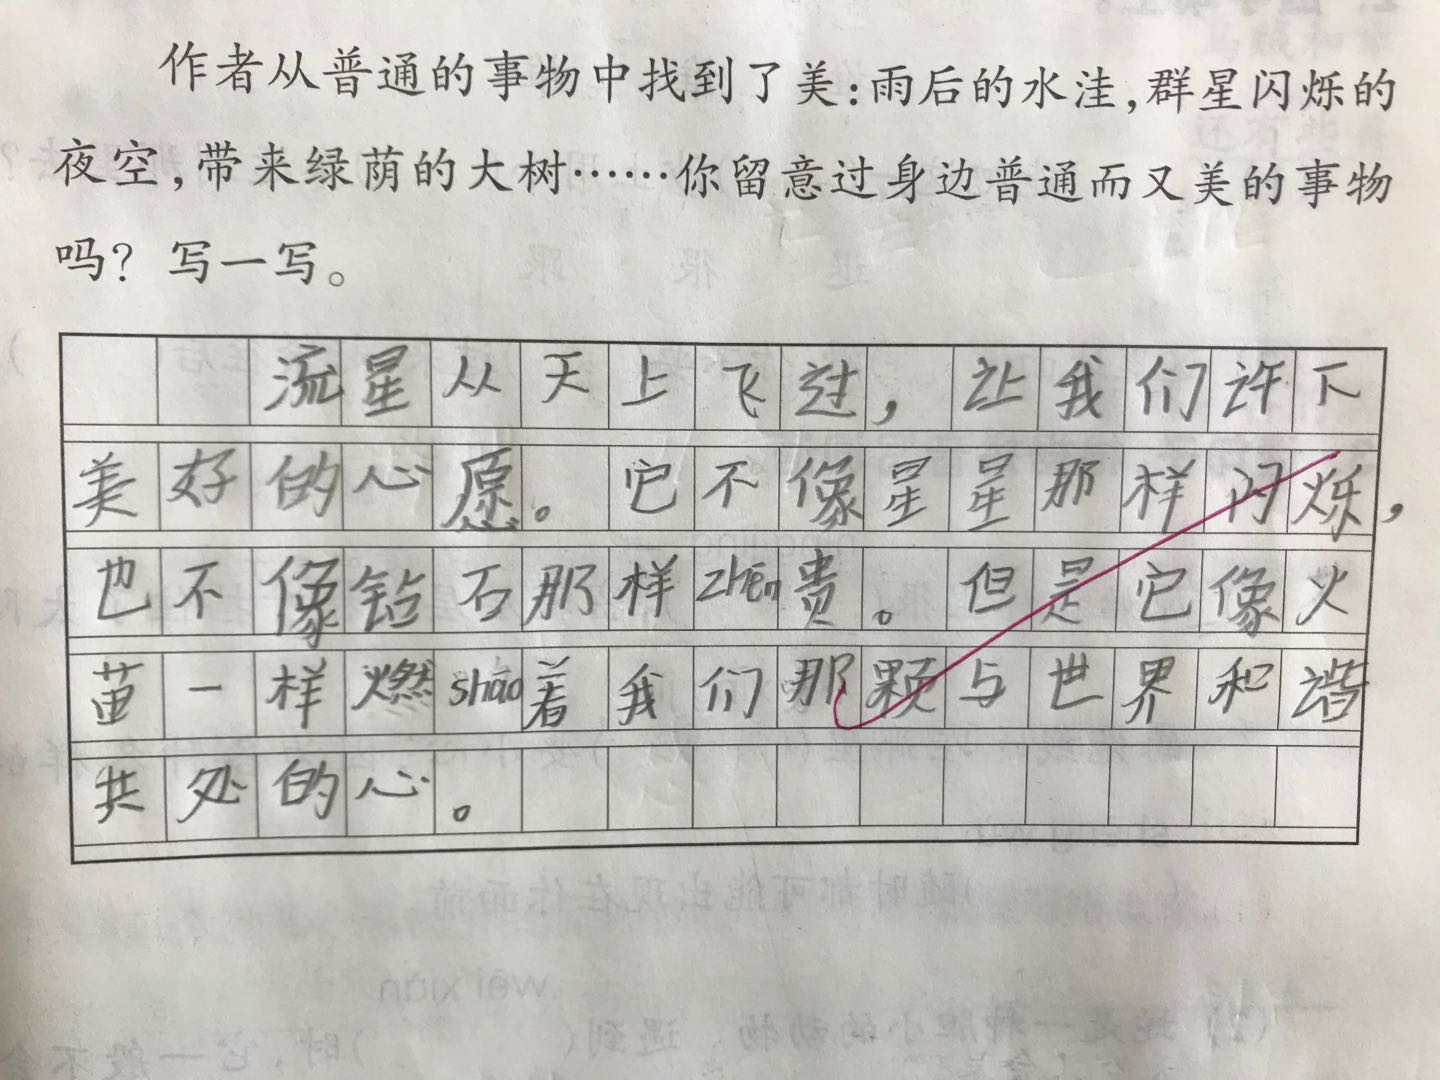 作者从普通的事物中找到了美：雨后的水洼，群星闪烁的
夜空，带来绿荫的大树……你留意过身边普通而又美的事物
吗？写一写。
流星从天上飞过，让我们许下
美好的心愿。它不像星星那样闪烁，
也不像钻石那样zhēn贵。但是它像火
苗一样燃shāo着我们那颗与世界和谐
共处的心。